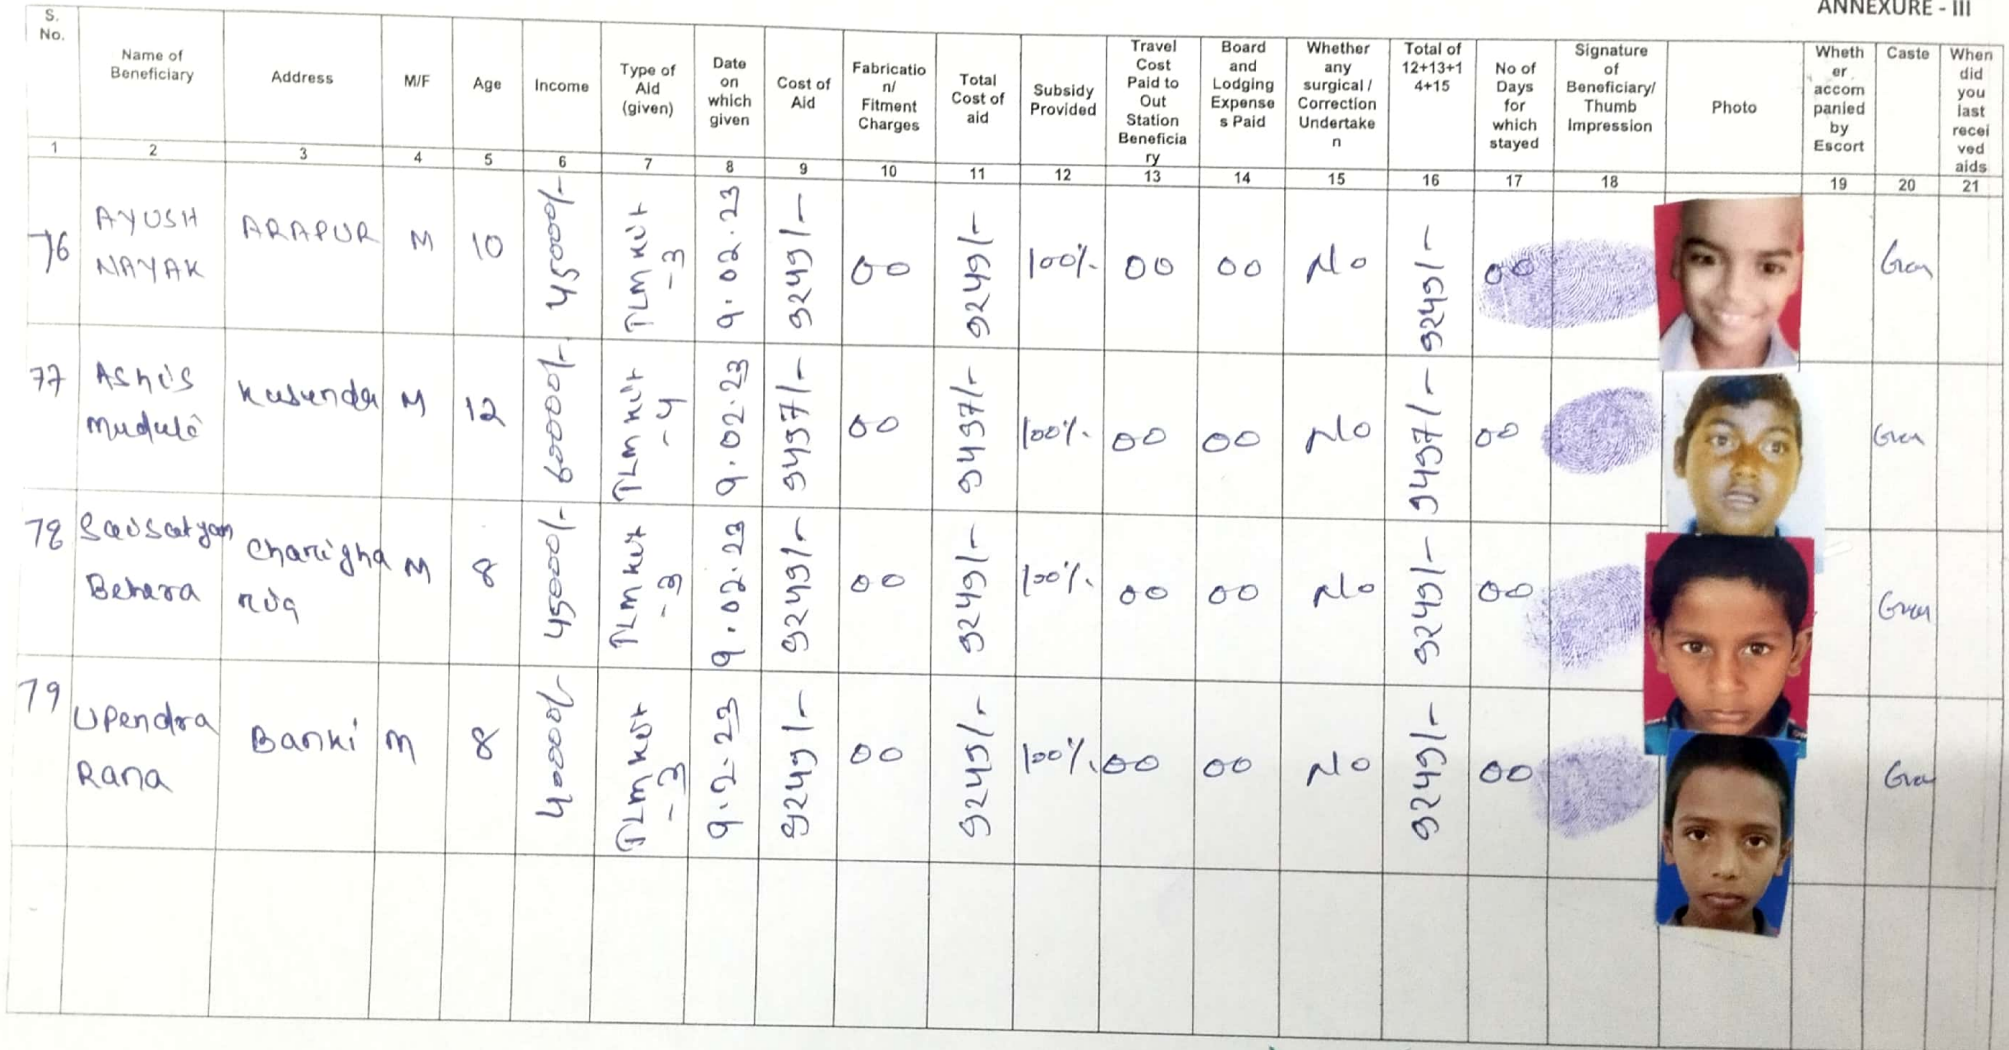 ANNEXURE - III
S. No.
Name of Beneficiary
Address
M/F
Age
Income
Type of Aid (given)
Date on which given
Cost of Aid
Fabricatio n/ Fitment Charges
Total Cost of aid
Subsidy Provided
Travel Cost Paid to Out Station Beneficia ry
Board and Lodging Expense s Paid
Whether any surgical / Correction Undertake n
Total of 12+13+1 4+15
No of Days for which stayed
Signature of Beneficiary/ Thumb Impression
Photo
Wheth er accom panied by Escort
Caste
When did you last recei ved aids
1 2 3 4 5 6 7 8 9 10 11 12 13 14 15 16 17 18 19 20 21
76 AYUSH NAYAK ARAPUR M 10 45000/- TLM kit -3 9.02.23 9249/- 00 9249/- 100%. 00 00 No 9249/- 00
77 Ashis muduli Kusunda M 12 60000/- TLM kit -4 9.02.23 9497/- 00 9497/- 100%. 00 00 No 9497/- 00
78 Saisatyam Behera M 8 45000/- TLM kit -3 9.02.23 9249/- 00 9249/- 100%. 00 00 No 9249/- 00
79 Upendra Rana Banki M 8 40000/- TLM kit -3 9.2.23 9249/- 00 9249/- 100%. 00 00 No 9249/- 00